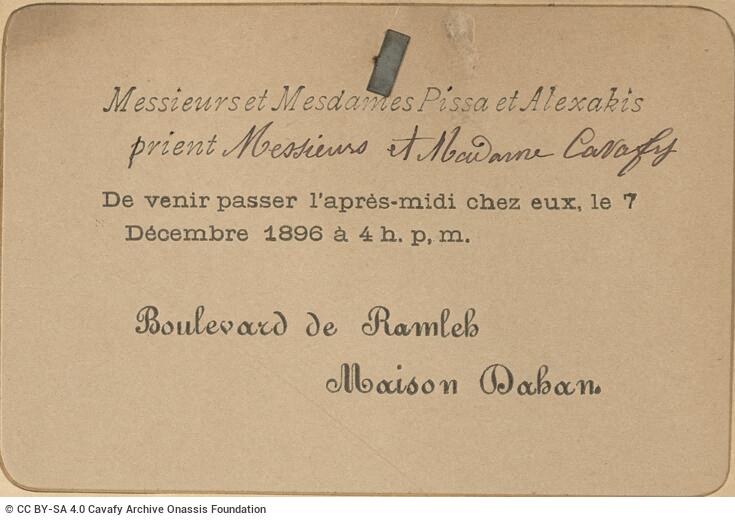 Messieurs et Mesdames Pissa et Alexakis
prient Messieurs et Madame Cavafy
De venir passer l'après-midi chez eux, le 7
Décembre 1896 à 4 h. p, m.
Boulevard de Ramleh
Maison Dahan.
© CC BY-SA 4.0 Cavafy Archive Onassis Foundation